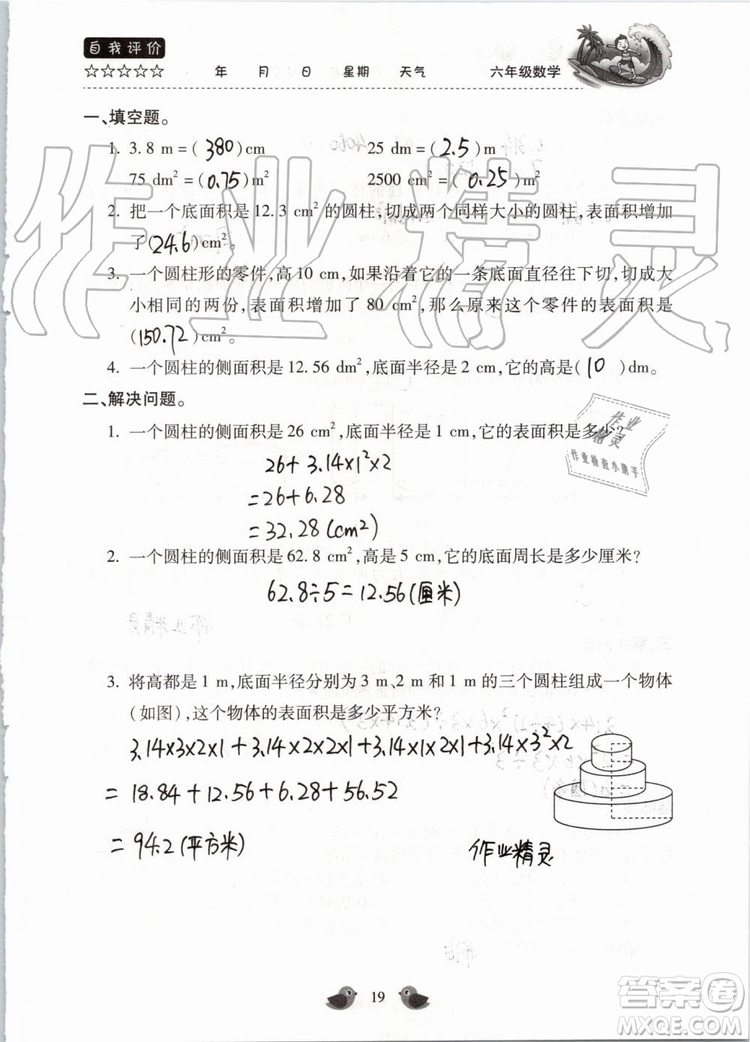 自我评价
☆☆☆☆☆ 年 月 日 星期 天气 六年级数学
一、填空题。
1. 3.8 m =(380)cm 25 dm =(2.5)m
75 dm² =(0.75)m² 2500 cm² =(0.25)m²
2. 把一个底面积是12.3 cm²的圆柱,切成两个同样大小的圆柱,表面积增加
了(24.6)cm²。
3. 一个圆柱形的零件,高10 cm,如果沿着它的一条底面直径往下切,切成大
小相同的两份,表面积增加了80 cm²,那么原来这个零件的表面积是
(150.72)cm²。
4. 一个圆柱的侧面积是12.56 dm²,底面半径是2 cm,它的高是(10)dm。
二、解决问题。
1. 一个圆柱的侧面积是26 cm²,底面半径是1 cm,它的表面积是多少?
26+3.14×1²×2
=26+6.28
=32.28(cm²)
2. 一个圆柱的侧面积是62.8 cm²,高是5 cm,它的底面周长是多少厘米?
62.8÷5=12.56(厘米)
3. 将高都是1 m,底面半径分别为3 m、2 m和1 m的三个圆柱组成一个物体
(如图),这个物体的表面积是多少平方米?
3.14×3×2×1+3.14×2×2×1+3.14×1×2×1+3.14×3²×2
=18.84+12.56+6.28+56.52
=94.2(平方米)
作业精灵
19
作业精灵
作业
精灵
作业检查小助手
答案圈
MXQE.COM